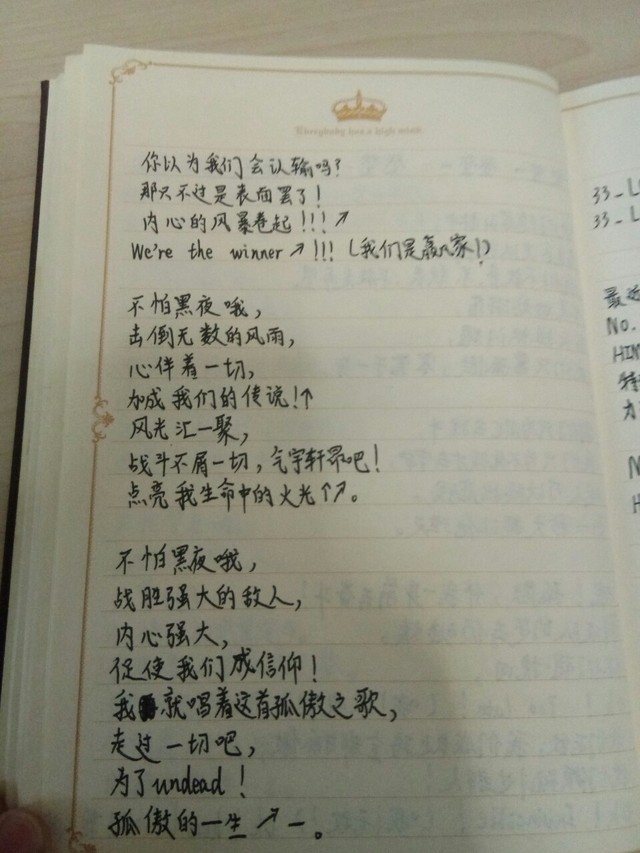 你以为我们会认输吗?
那只不过是表面罢了!
内心的风暴卷起!!!↗
We're the winner↗!!! (我们是赢家!)
不怕黑夜哦,
击倒无数的风雨,
心伴着一切,
加成我们的传说!↑
风光汇一聚,
战斗不屑一切,气宇轩昂吧!
点亮我生命中的火光↑↗。
不怕黑夜哦,
战胜强大的敌人,
内心强大,
促使我们成信仰!
我就唱着这首孤傲之歌,
走过一切吧,
为了undead!
孤傲的一生↗一。
33_L
33_L
最近
No.
HIN
N
H